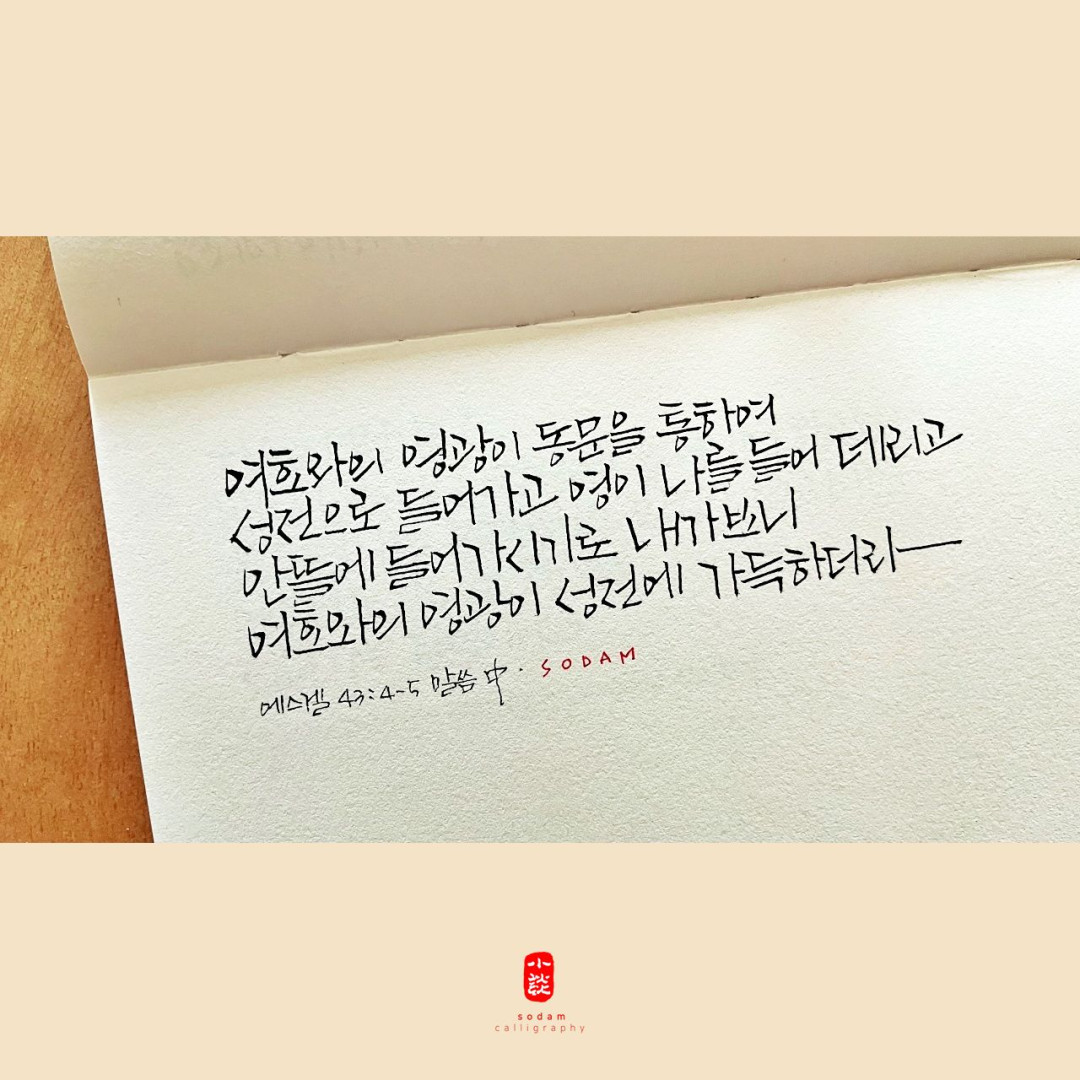 여호와의 영광이 동문을 통하여
성전으로 들어가고 영이 나를 들어 데리고
안뜰에 들어가시기로 내가 보니
여호와의 영광이 성전에 가득하더라
에스겔 43:4-5 말씀 中 · SODAM
小談
sodam
calligraphy